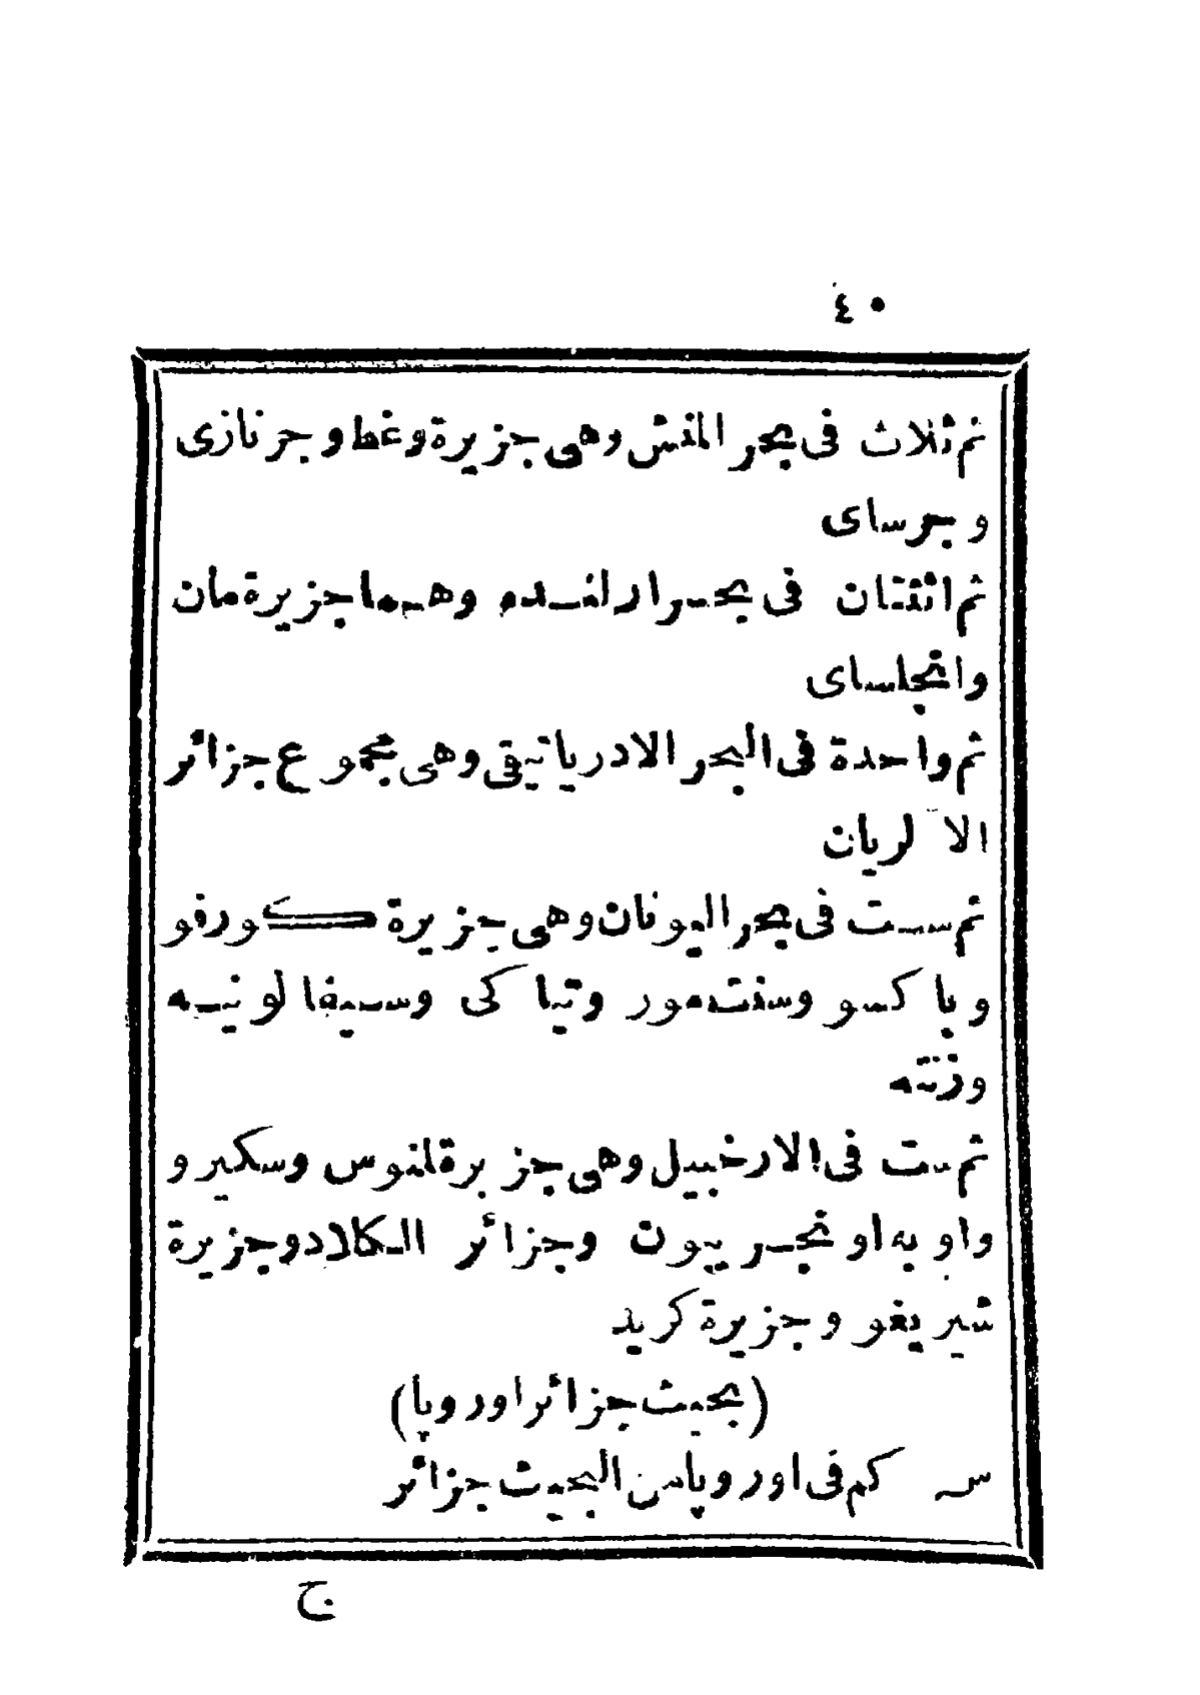 ٤٠
ثم ثلاث فى بحر المنش وهى جزيرة وغط وجرنازى
وجرساى
ثم اثنتان فى بحر ارلنده وهما جزيرة مان
وانجلساى
ثم واحدة فى البحر الادرياتيقى وهى مجموع جزائر
الآلريان
ثم ست فى بحر اليونان وهى جزيرة كورفو
وباكسو وسنتمور وتياكى وسيفالونيه
وزنته
ثم ست فى الارخبيل وهى جزيرة لنوس وسكيرو
واوبه او نجريبون وجزائر الكلاد وجزيرة
شيريغو وجزيرة كريد
(بحيث جزائر اوروپا)
س كم فى اوروپا من البحيث جزائر
ج